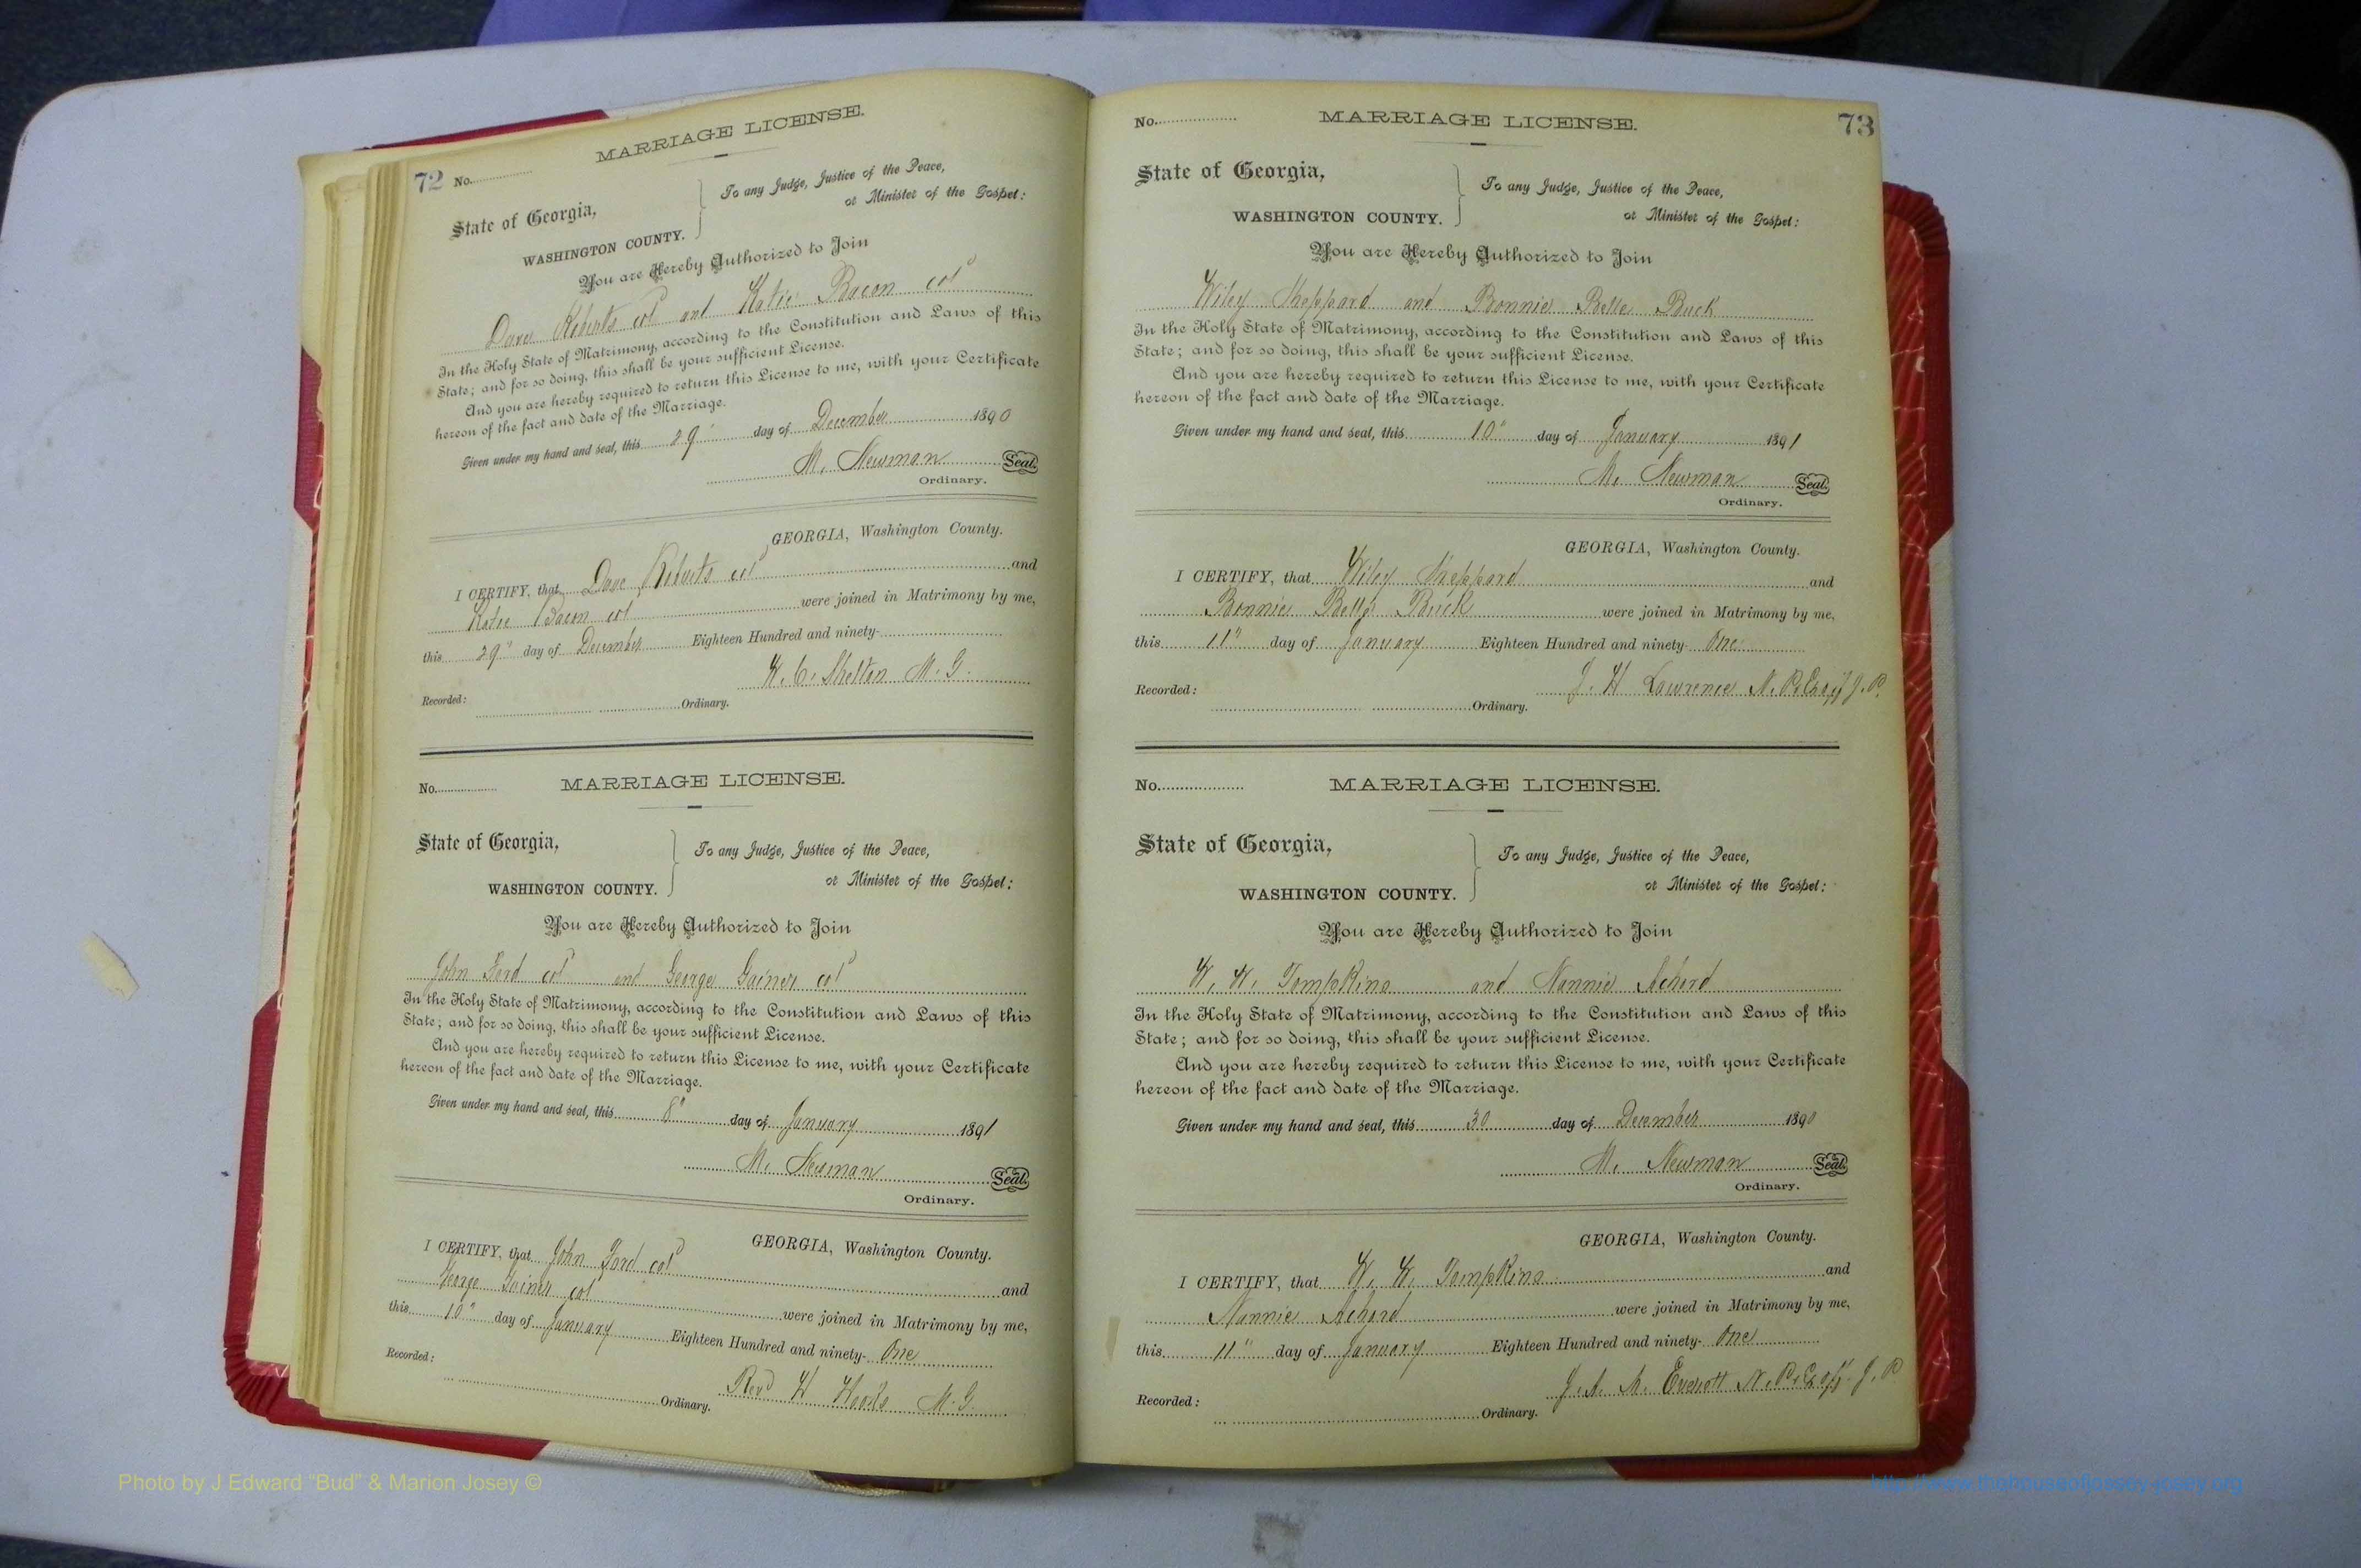 72 No.
MARRIAGE LICENSE.
State of Georgia,
WASHINGTON COUNTY.
To any Judge, Justice of the Peace,
or Minister of the Gospel:
You are Hereby Authorized to Join
Dave Roberts cold and Katie Bacon cold
In the Holy State of Matrimony, according to the Constitution and Laws of this
State; and for so doing, this shall be your sufficient License.
And you are hereby required to return this License to me, with your Certificate
hereon of the fact and date of the Marriage.
Given under my hand and seal, this 29" day of December 1890
M. Newman Seal.
Ordinary.
GEORGIA, Washington County.
I CERTIFY, that Dave Roberts cold and
Katie Bacon col were joined in Matrimony by me,
this 29" day of December Eighteen Hundred and ninety-
W. C. Shelton M. G.
Recorded:
Ordinary.
No.
MARRIAGE LICENSE.
State of Georgia,
WASHINGTON COUNTY.
To any Judge, Justice of the Peace,
or Minister of the Gospel:
You are Hereby Authorized to Join
John Ford cold and George Gainer cold
In the Holy State of Matrimony, according to the Constitution and Laws of this
State; and for so doing, this shall be your sufficient License.
And you are hereby required to return this License to me, with your Certificate
hereon of the fact and date of the Marriage.
Given under my hand and seal, this 8" day of January 1891
M. Newman Seal.
Ordinary.
GEORGIA, Washington County.
I CERTIFY, that John Ford cold and
George Gainer col were joined in Matrimony by me,
this 10" day of January Eighteen Hundred and ninety- One
Revd H Woods M. G.
Recorded:
Ordinary.
No.
MARRIAGE LICENSE.
73
State of Georgia,
WASHINGTON COUNTY.
To any Judge, Justice of the Peace,
or Minister of the Gospel:
You are Hereby Authorized to Join
Wiley Sheppard and Bonnie Belle Buck
In the Holy State of Matrimony, according to the Constitution and Laws of this
State; and for so doing, this shall be your sufficient License.
And you are hereby required to return this License to me, with your Certificate
hereon of the fact and date of the Marriage.
Given under my hand and seal, this 10" day of January 1891
M. Newman Seal.
Ordinary.
GEORGIA, Washington County.
I CERTIFY, that Wiley Sheppard and
Bonnie Belle Buck were joined in Matrimony by me,
this 11" day of January Eighteen Hundred and ninety- One
J. H Lawrence N. P. & Ex off J. P.
Recorded:
Ordinary.
No.
MARRIAGE LICENSE.
State of Georgia,
WASHINGTON COUNTY.
To any Judge, Justice of the Peace,
or Minister of the Gospel:
You are Hereby Authorized to Join
W. W. Tompkins and Nannie
In the Holy State of Matrimony, according to the Constitution and Laws of this
State; and for so doing, this shall be your sufficient License.
And you are hereby required to return this License to me, with your Certificate
hereon of the fact and date of the Marriage.
Given under my hand and seal, this 30 day of December 1890
M. Newman Seal.
Ordinary.
GEORGIA, Washington County.
I CERTIFY, that W. W. Tompkins and
Nannie were joined in Matrimony by me,
this 11" day of January Eighteen Hundred and ninety- One
J. A. M. Everett N. P. Ex off. J. P
Recorded:
Ordinary.
Photo by J Edward "Bud" & Marion Josey ©
http://www.thehouseofjossey-josey.org